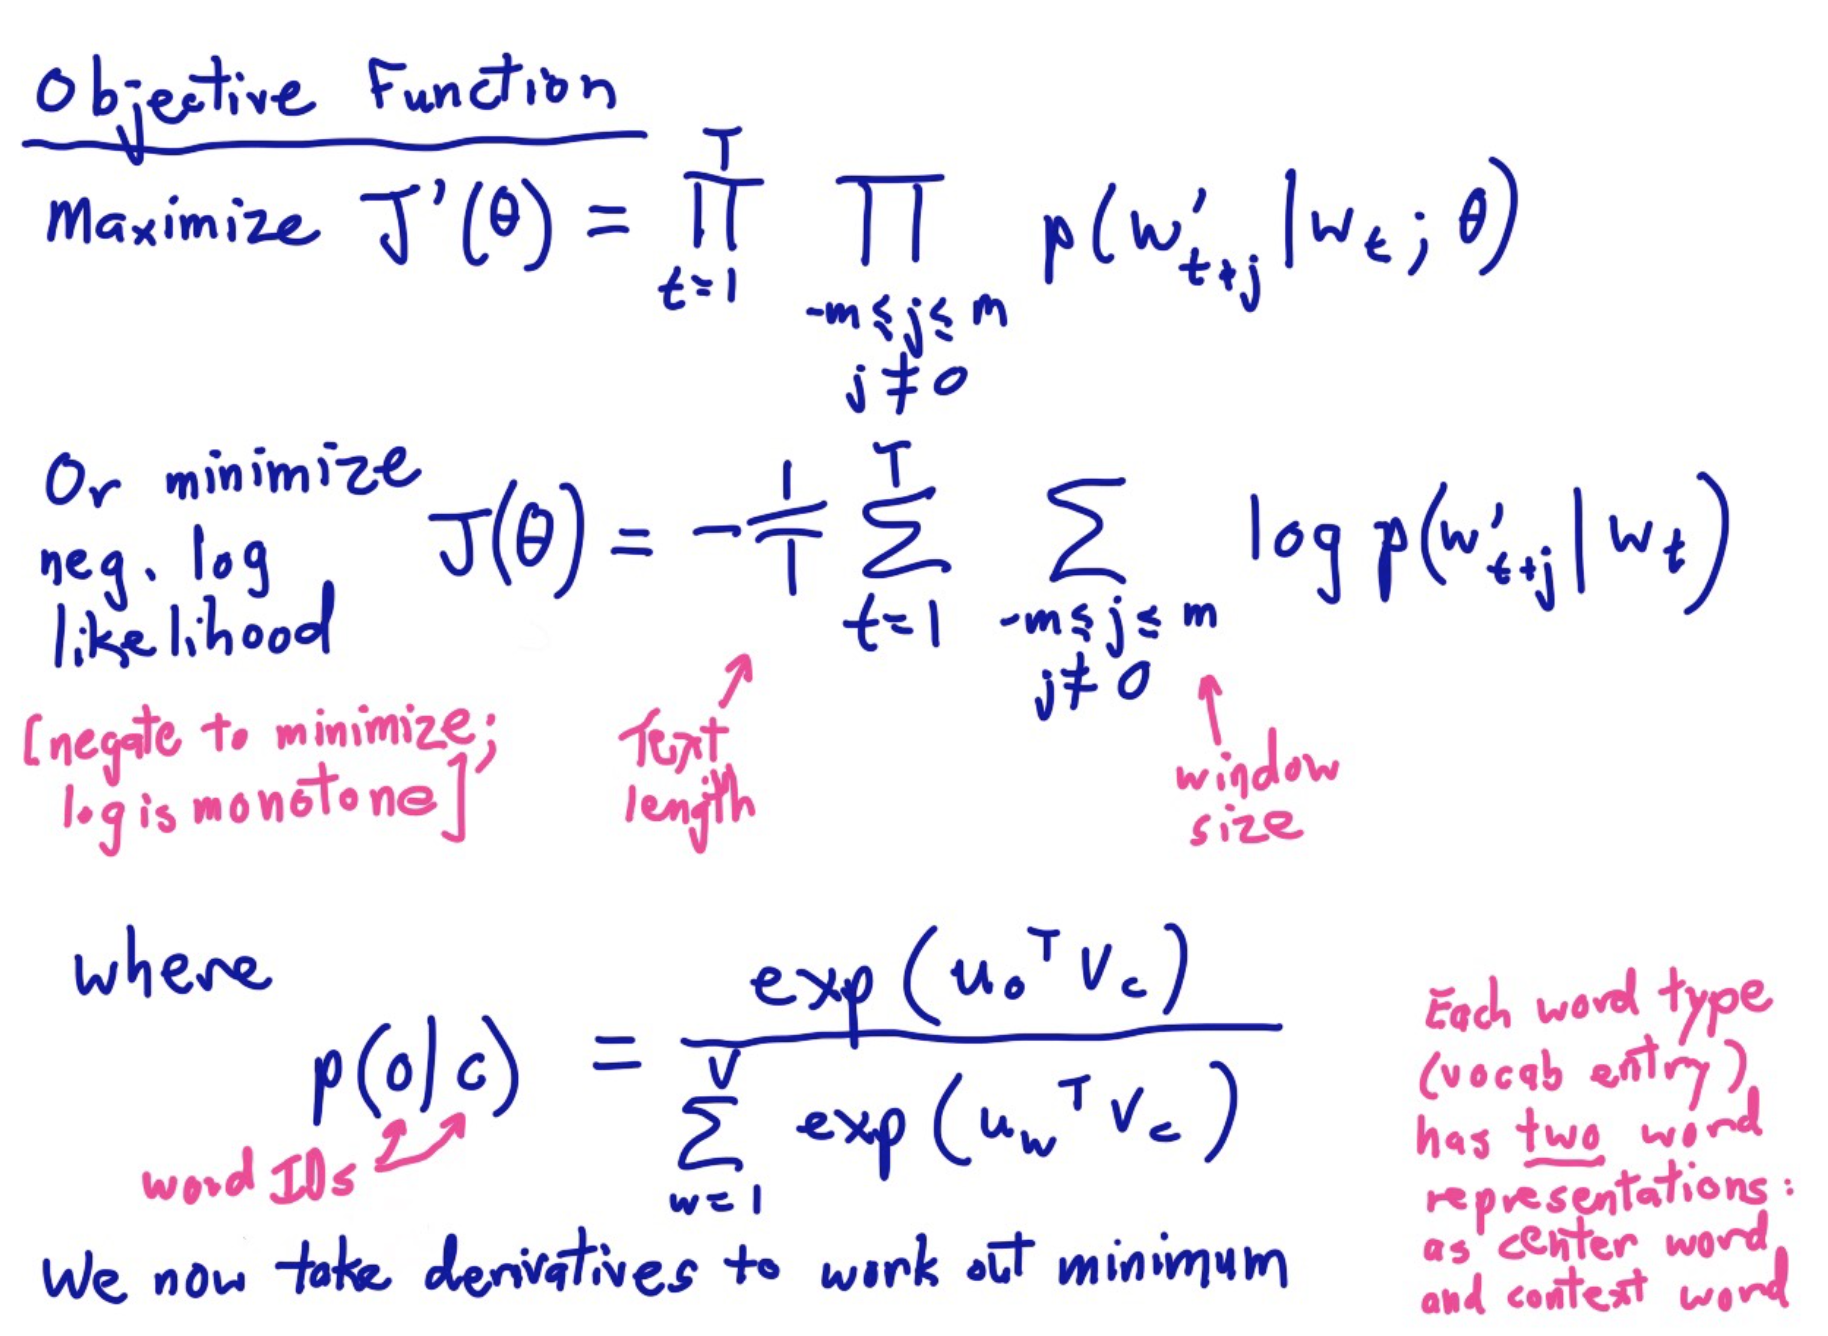 Objective Function
Maximize J'(θ) = ∏_{t=1}^{T} ∏_{-m≤j≤m, j≠0} p(w'_{t+j} | w_t ; θ)
Or minimize
neg. log
likelihood
J(θ) = -1/T ∑_{t=1}^{T} ∑_{-m≤j≤m, j≠0} log p(w'_{t+j} | w_t)
[negate to minimize;
log is monotone]
Text
length
window
size
where
p(o|c) = exp(u_o^T v_c) / ∑_{w=1}^{V} exp(u_w^T v_c)
word IDs
Each word type
(vocab entry)
has two word
representations:
as center word
and context word
We now take derivatives to work out minimum